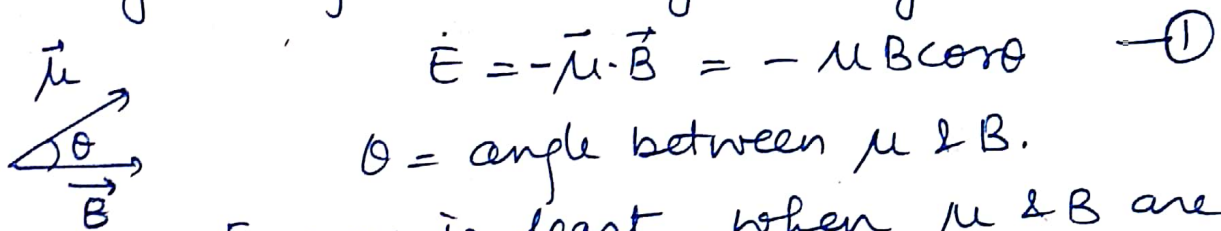 Ė = -μ⃗·B⃗ = - μBcosθ —①
μ⃗
θ
B⃗
θ = angle between μ & B.
is least when μ & B are